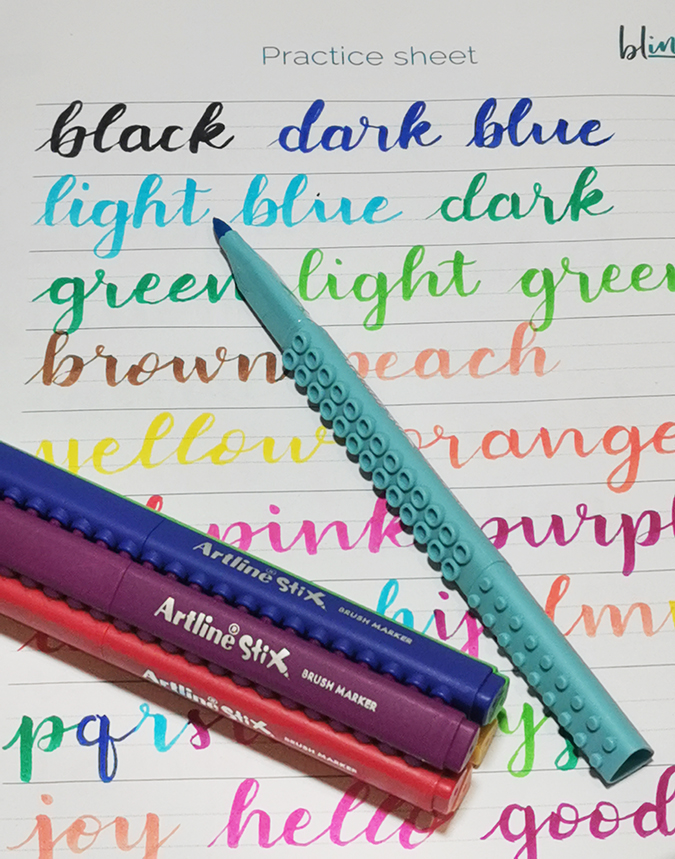 Practice sheet
black dark blue
light blue dark
green light green
brown peach
yellow orange
pink purpl
hij lm
Artline® Stix BRUSH MARKER
Artline® Stix BRUSH MARKER
Artline Stix BRUSH MARKER
pqrs yz
joy hello good